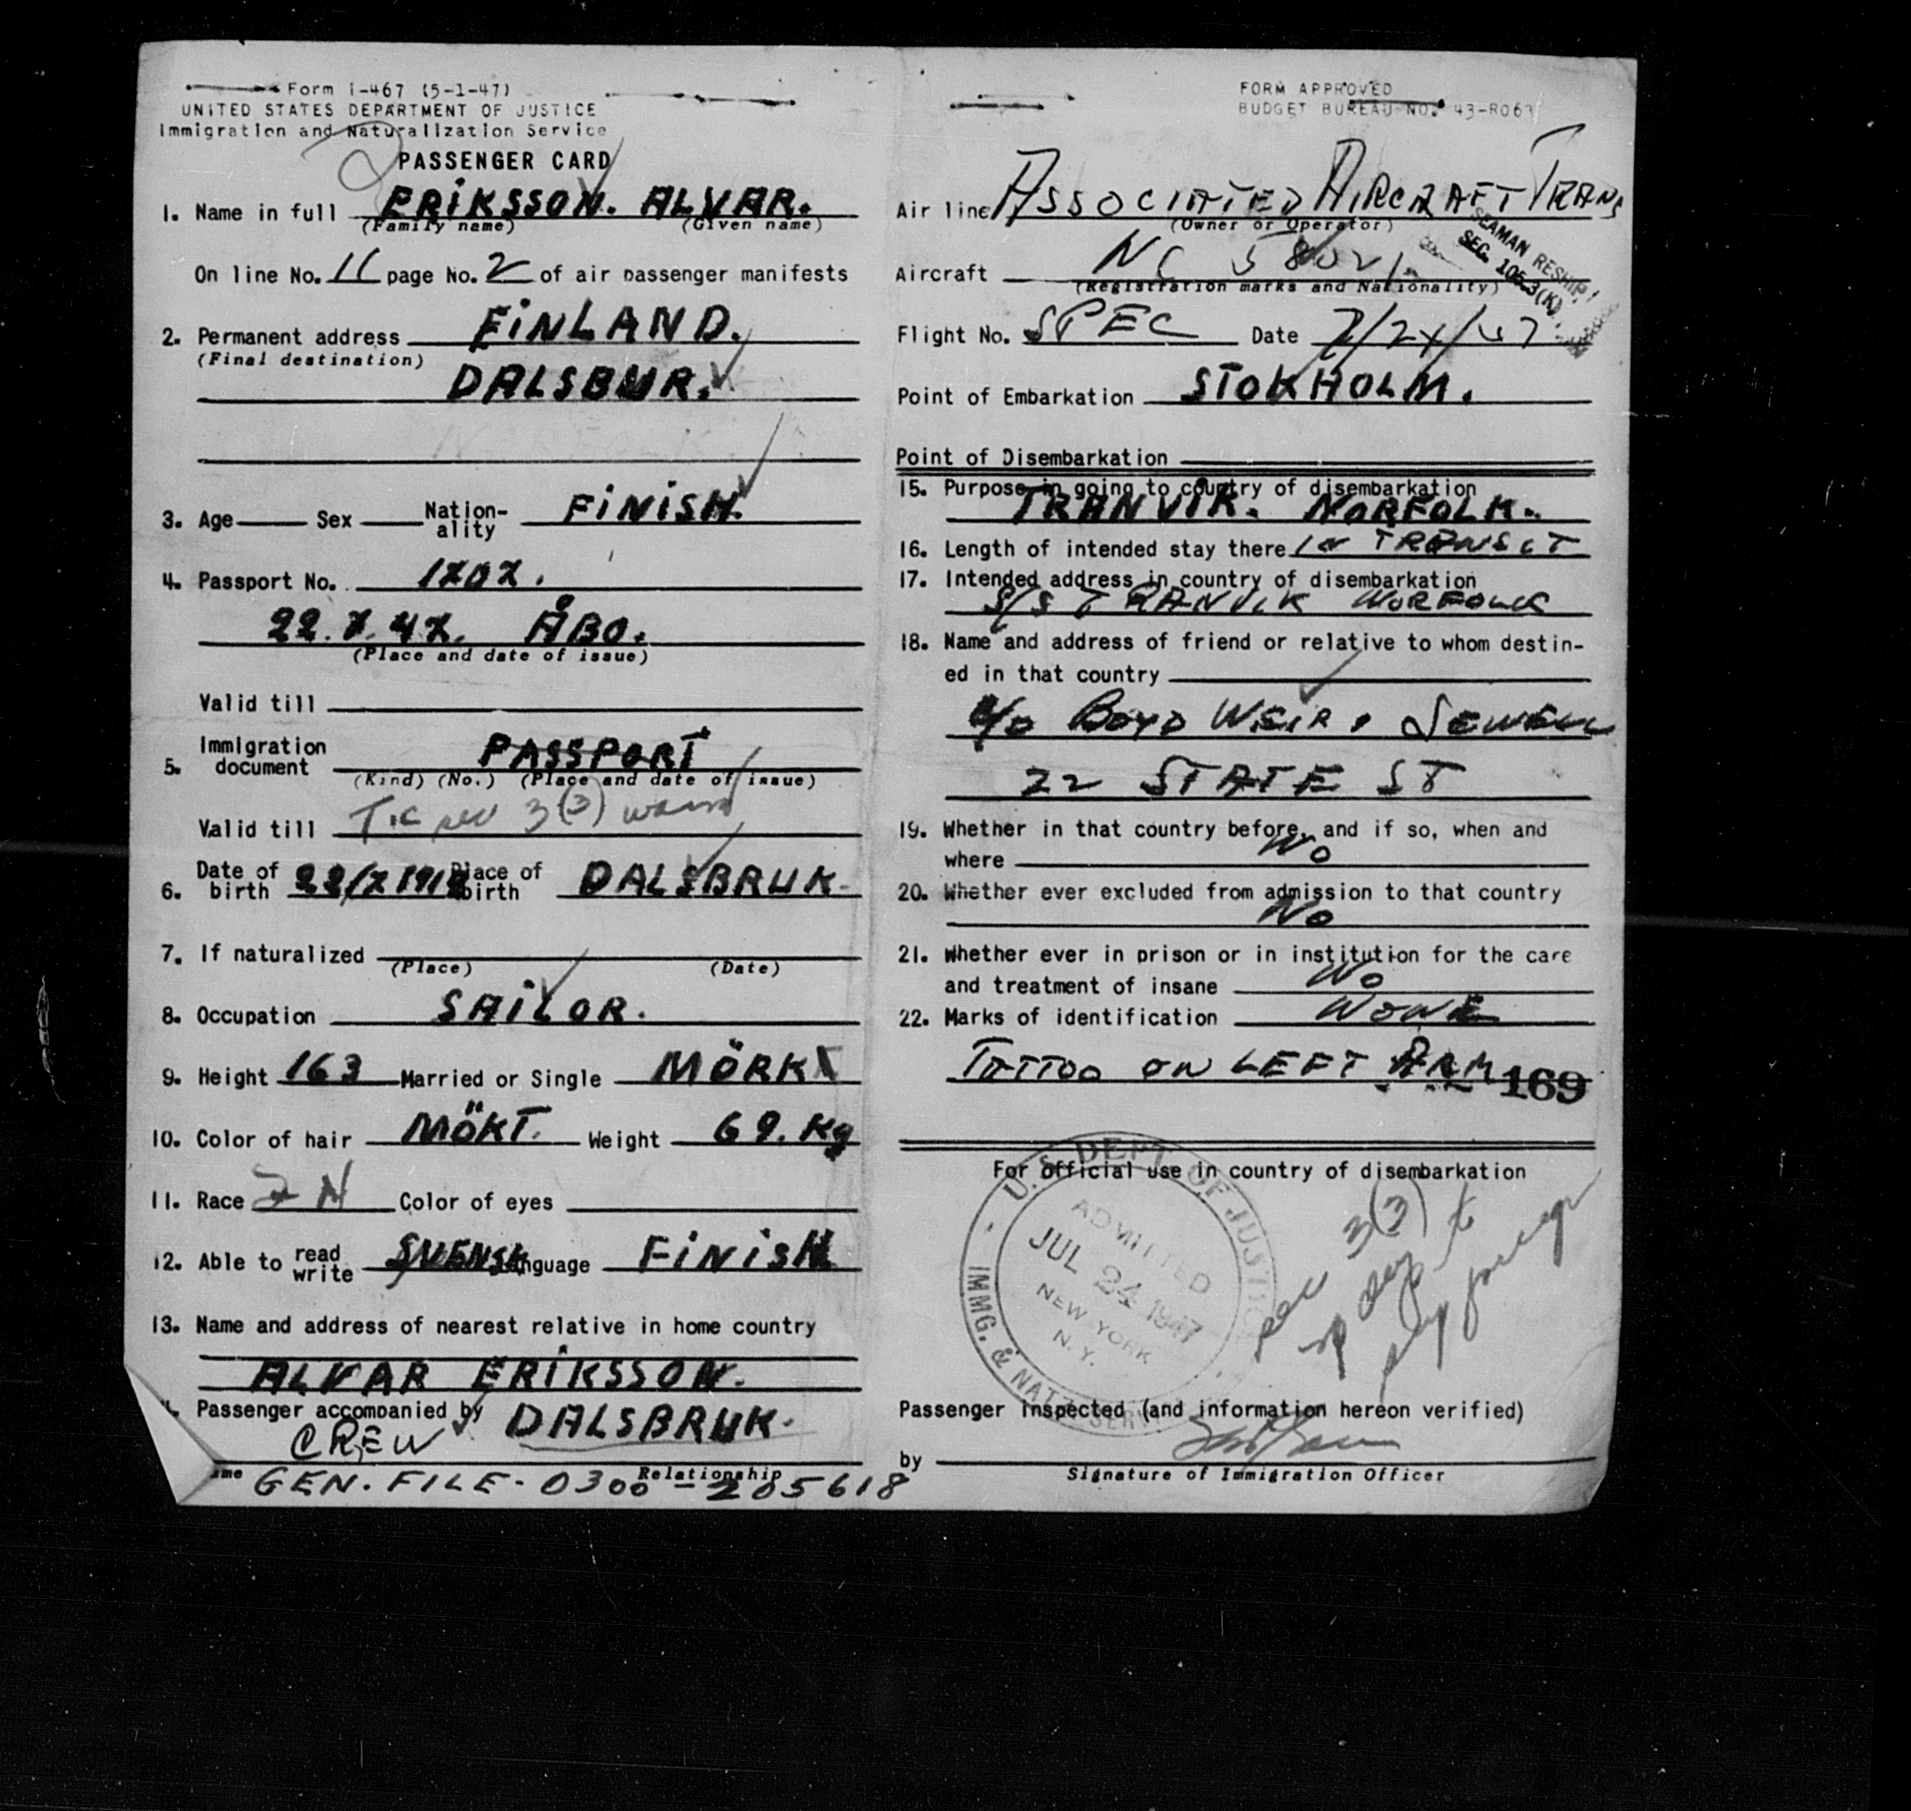 Form I-467 (5-1-47)
UNITED STATES DEPARTMENT OF JUSTICE
Immigration and Naturalization Service
PASSENGER CARD
1. Name in full ERIKSSON. ALVAR.
(Family name) (Given name)
On line No. 11 page No. 2 of air passenger manifests
2. Permanent address FINLAND.
(Final destination)
DALSBUR.
3. Age Sex Nation-ality FINISH.
4. Passport No. 1707.
22.7.47. ÅBO.
(Place and date of issue)
Valid till
5. Immigration document PASSPORT
(Kind) (No.) (Place and date of issue)
Valid till sec 3(3)
6. Date of birth 22/7 1912 Place of birth DALSBRUK.
7. If naturalized
(Place) (Date)
8. Occupation SAILOR.
9. Height 163 Married or Single MÖRKT
10. Color of hair MÖKT. Weight 69. Kg
11. Race Color of eyes
12. Able to read write SVENSK language FINISH
13. Name and address of nearest relative in home country
ALVAR ERIKSSON.
Passenger accompanied by DALSBRUK.
CREW
Relationship
GEN. FILE-0300-205618
FORM APPROVED
BUDGET BUREAU NO. 43-R063
Air line ASSOCIATED AIRCRAFT TRANS
(Owner or Operator)
SEAMAN RESHIP
SEC. 105.3(K)
Aircraft NC 58021
(Registration marks and Nationality)
Flight No. SPEC Date 7/24/47
Point of Embarkation STOKHOLM.
Point of Disembarkation
15. Purpose in going to country of disembarkation
TRANVIK. NORFOLK.
16. Length of intended stay there IN TRANSIT
17. Intended address in country of disembarkation
S/S TRANVIK NORFOLK
18. Name and address of friend or relative to whom destin-
ed in that country
c/o BOYD WEIR & SEWELL
22 STATE ST
19. Whether in that country before, and if so, when and
where No
20. Whether ever excluded from admission to that country
No
21. Whether ever in prison or in institution for the care
and treatment of insane No
22. Marks of identification NONE
TATTOO ON LEFT ARM 169
For official use in country of disembarkation
U.S. DEPT. OF JUSTICE
ADMITTED
JUL 24 1947
NEW YORK
N.Y.
IMMG. & NATZ. SERV.
sec 3(3)
Passenger inspected (and information hereon verified)
by
Signature of Immigration Officer